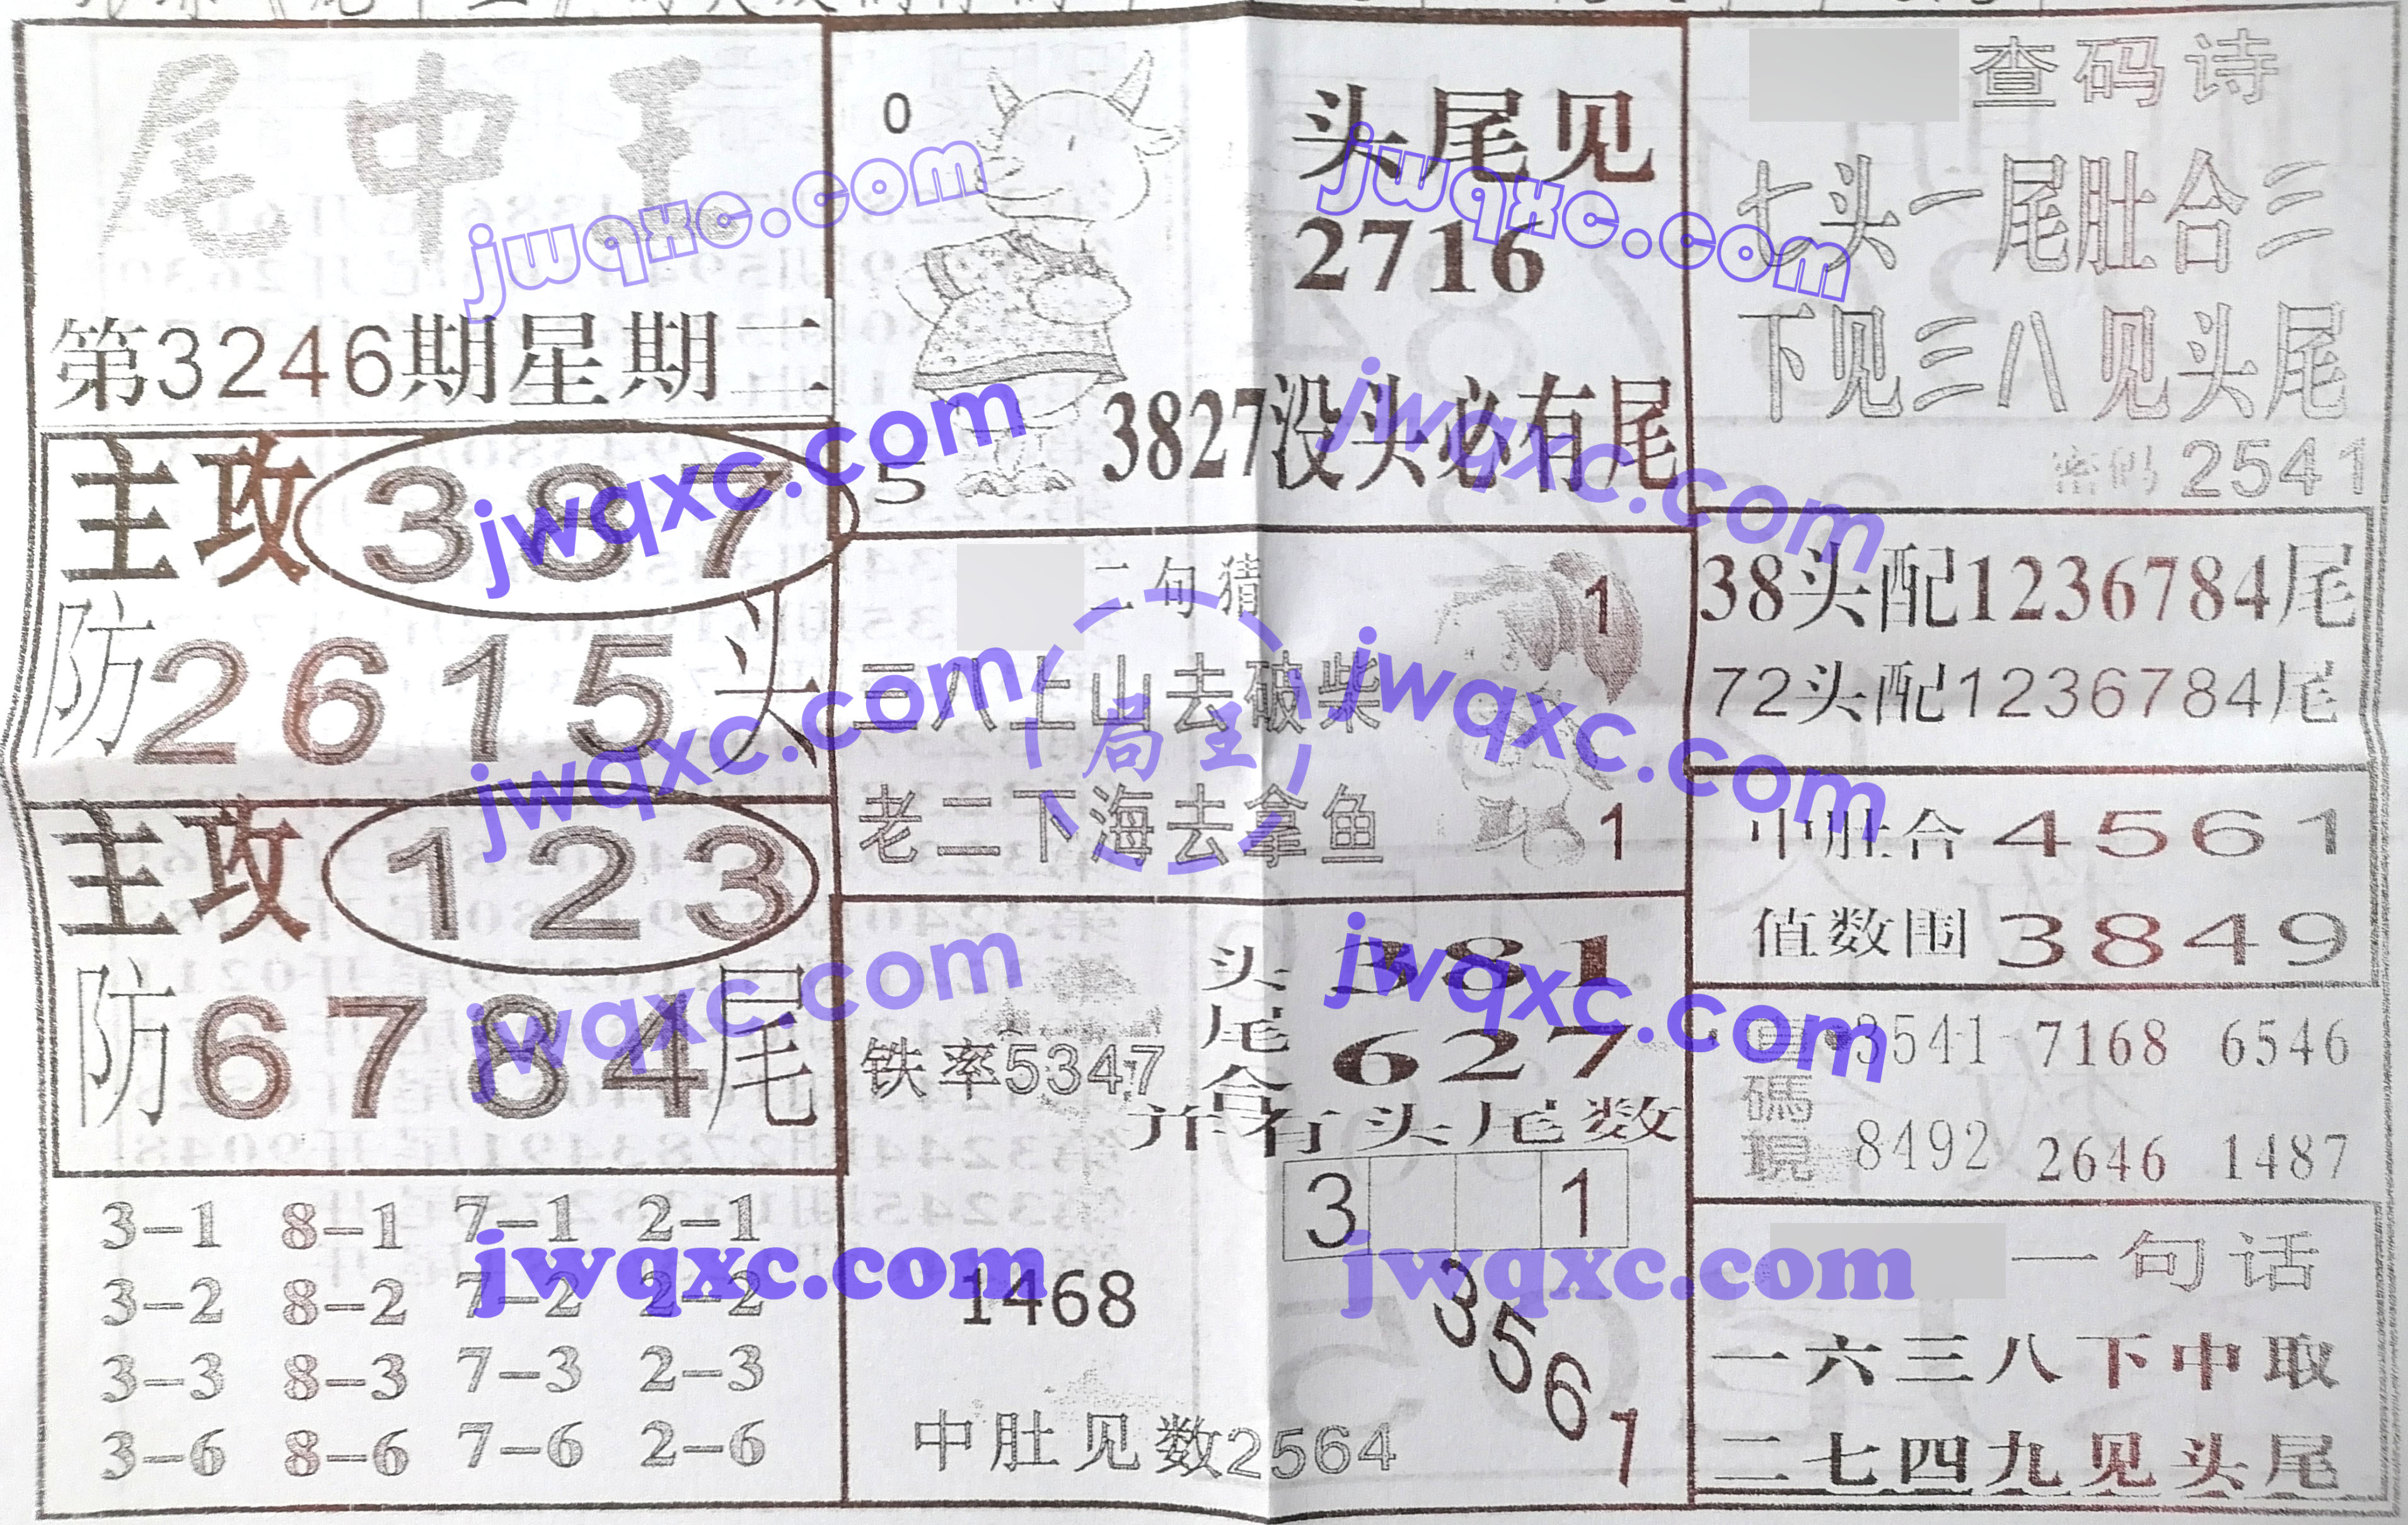 尾中王
第3246期星期二
主攻387
防2615头
主攻123
防6784尾
3-1 8-1 7-1 2-1
3-2 8-2 7-2 2-2
3-3 8-3 7-3 2-3
3-6 8-6 7-6 2-6
0
5
头尾见
2716
3827没头必有尾
二句猜
三八上山去破柴
老二下海去拿鱼
1
1
局王
铁率5347
头尾合
381
627
并有头尾数
3 1
3561
1468
中肚见数2564
查码诗
七头一尾肚合三
下见三八见头尾
密码2541
38头配1236784尾
72头配1236784尾
中肚合4561
值数围3849
碼現
3541 7168 6546
8492 2646 1487
一句话
一六三八下中取
二七四九见头尾
jwqxc.com
jwqxc.com
jwqxc.com
jwqxc.com
jwqxc.com
jwqxc.com
jwqxc.com
jwqxc.com
jwqxc.com
jwqxc.com